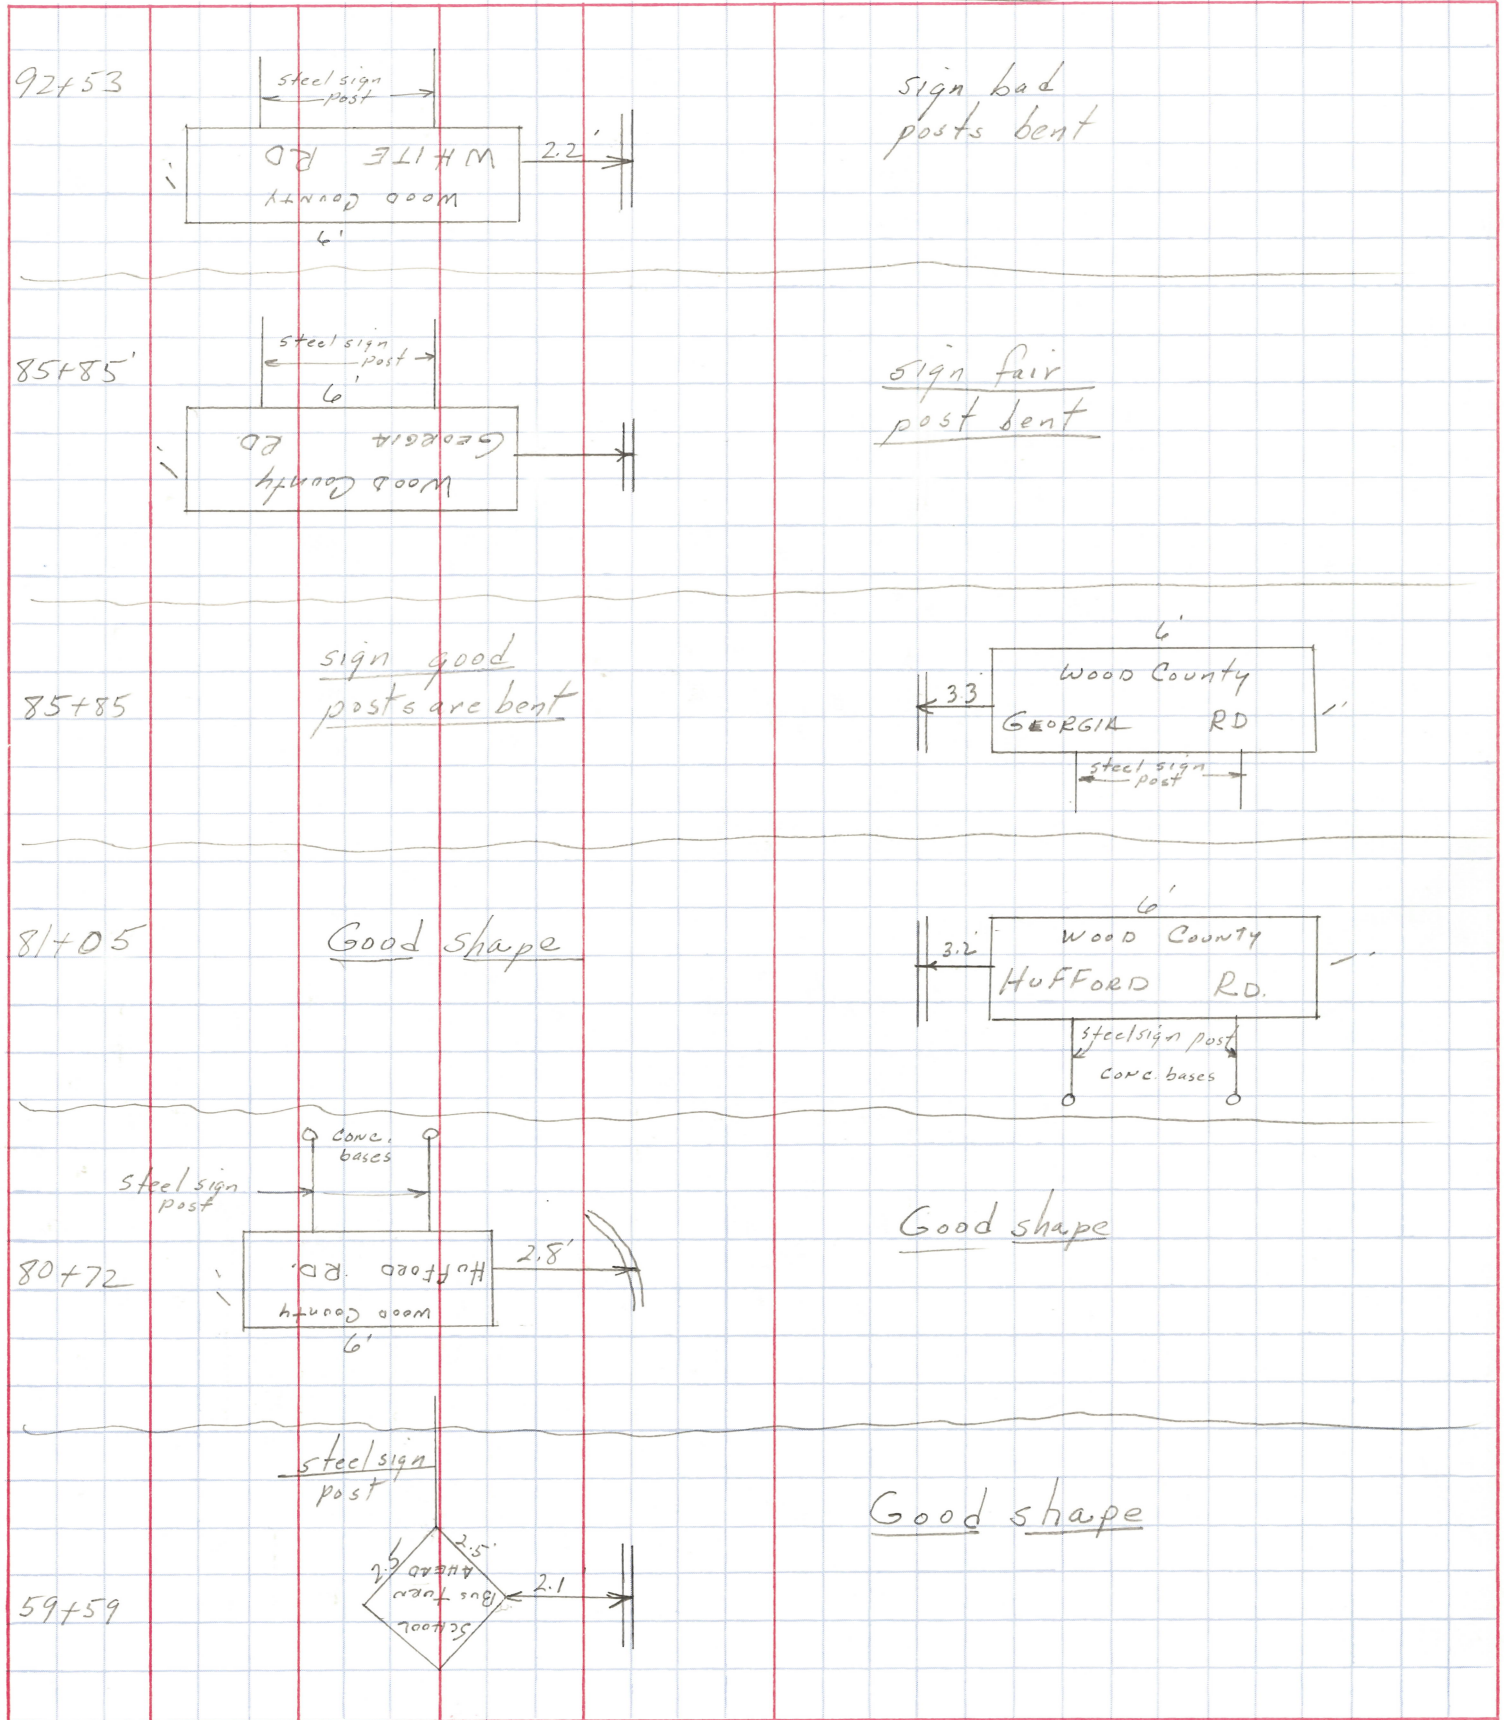 92+53
steel sign
post
sign bad
posts bent
WHITE RD
WOOD COUNTY
2.2'
1'
6'
85+85'
steel sign
post
6'
sign fair
post bent
GEORGIA RD.
WOOD County
1'
85+85
sign good
posts are bent
6'
3.3'
WOOD County
GEORGIA RD
1'
steel sign
post
81+05
Good shape
6'
3.2'
WOOD COUNTY
HUFFORD RD.
1'
steel sign post
CONC. bases
CONC.
bases
steel sign
post
80+72
HUFFORD RD.
WOOD County
2.8'
1'
6'
Good shape
steel sign
post
Good shape
59+59
2.5'
2.5'
SCHOOL
BUS TURN
AHEAD
2.1'